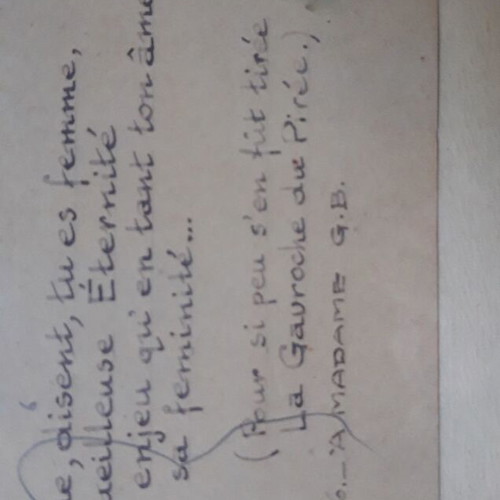 disent, tu es femme,
Éternité
enjeu qu'en tant ton âme
sa feminité...
(Pour si peu s'en fût tirée
La Gavroche du Pirée.)
_ A MADAME G.B.